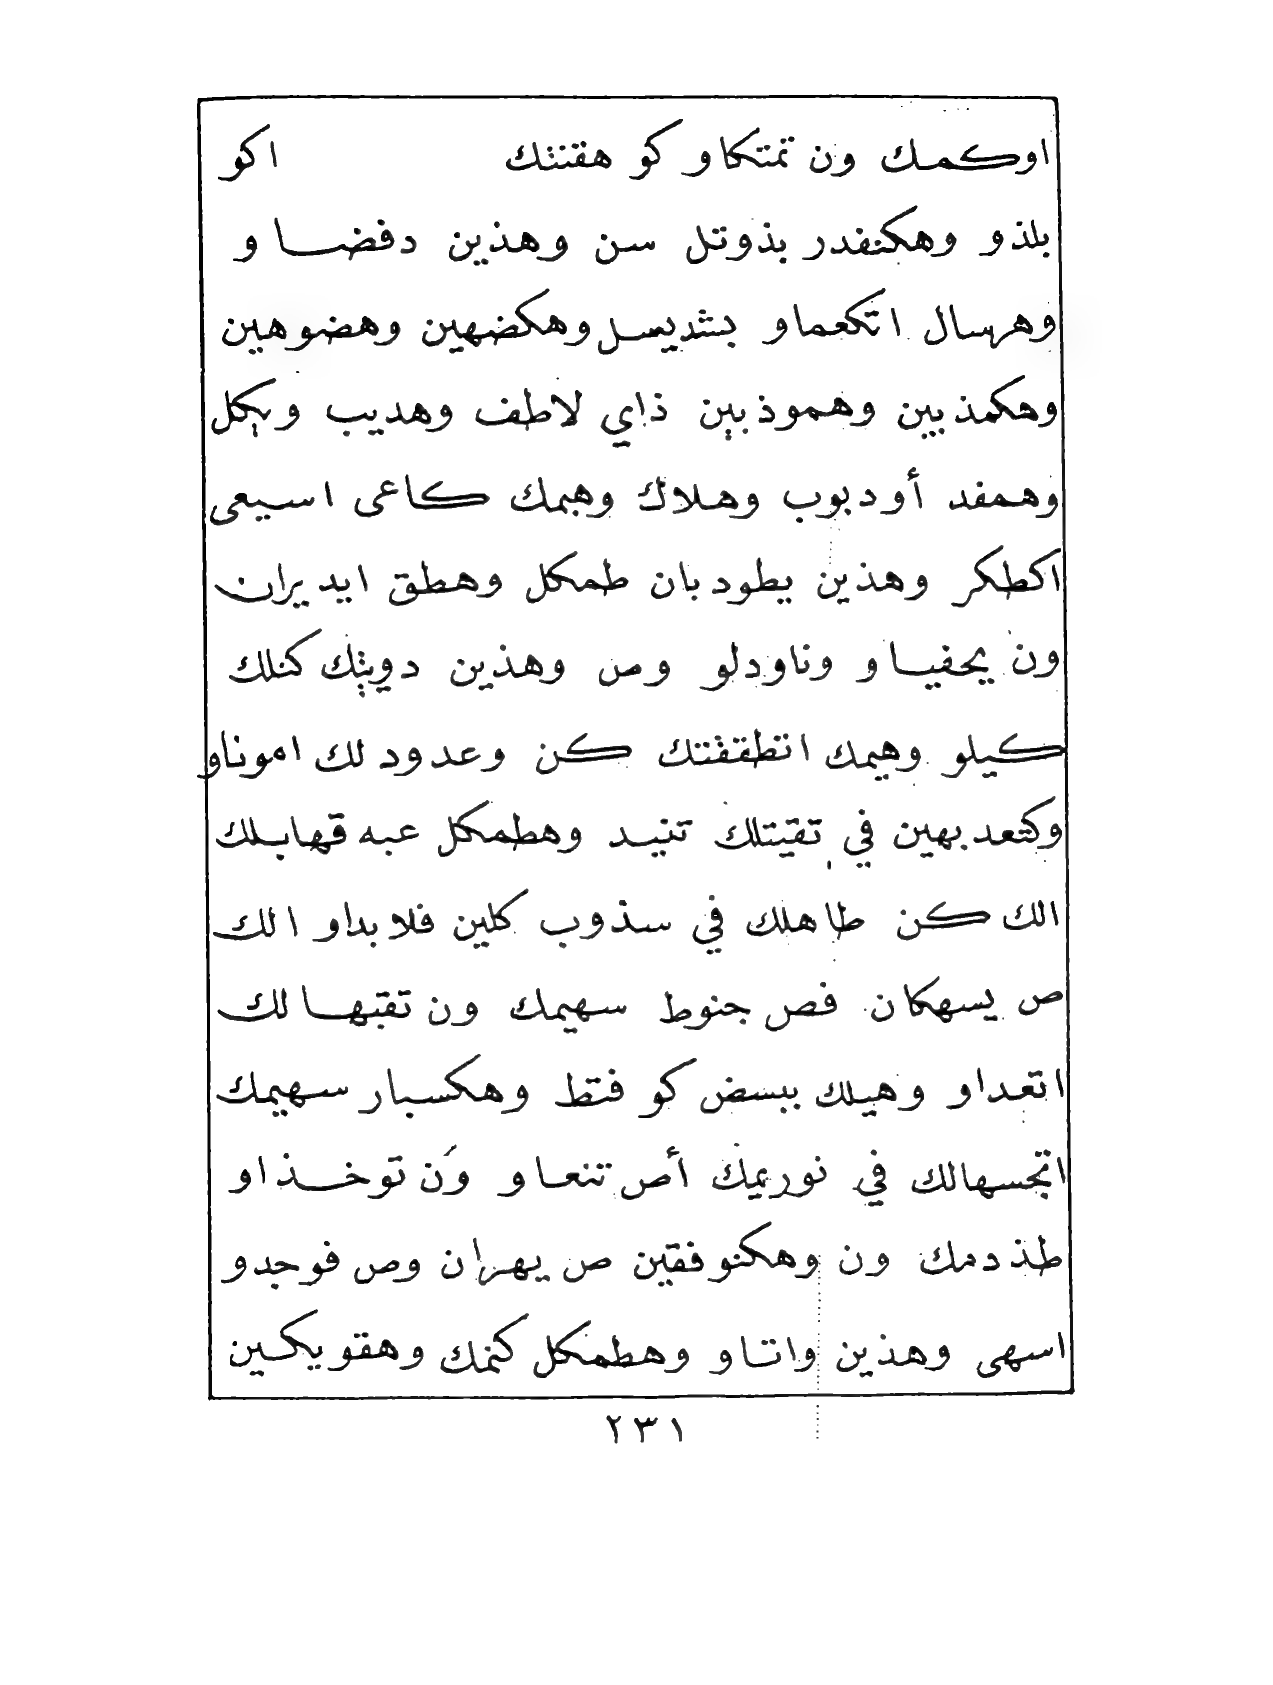 اوكمك ون تمتكاو كو هقتتك اكو
بلذو وهكنفدر بذوتل سن وهذين دفضاو
وهرسال اتكعماو بثديسل وهكضهين وهضوهين
وهكمذيين وهموذيين ذاي لاطف وهديب
وهمفد أودبوب وهلاك وهيمك كاعى اسيعى
اكطكر وهذين يطودبان طمكل وهطق ايديران
ون يحفياو وناودلو وص وهذين دويثك كنلك
كيلو وهيمك اتطقفتك كن وعدود لك اموناو
وكتعدبهين في تقيتلك تنيد وهطمكل عبه قهابلك
الك كن طاهلك في سذوب كلين فلابداو الك
ص يسهكان فص جنوط سهيمك ون تقبهالك
اتعداو وهيلك ببسض كو فتط وهكسبار سهيمك
اتجسهالك في نوريمك أص تنعاو ون توخذاو
طذدمك ون وهكنوفقين ص يهران وص فوجدو
اسهى وهذين واتاو وهطمكل كنمك وهقويكين
٢٣١